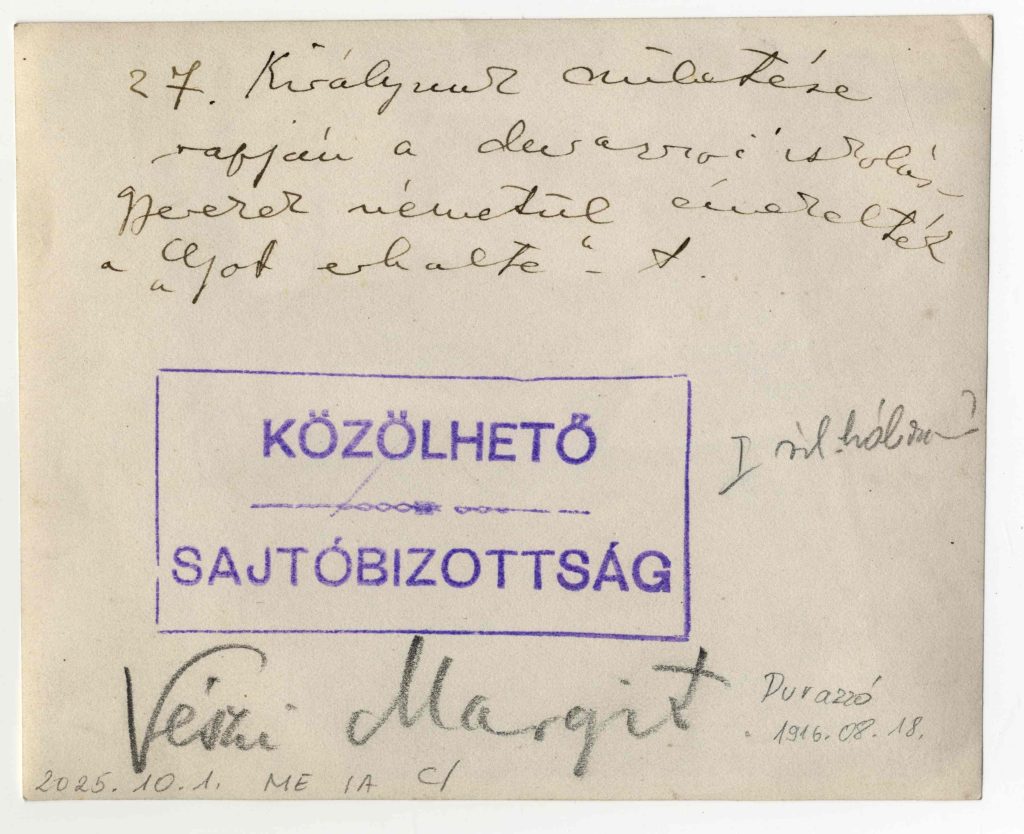 27. Királyunk születése
napján a durazzoi iskolás-
gyerekek németül énekelték
a „Gott erhalte“-t.
KÖZÖLHETŐ
SAJTÓBIZOTTSÁG
I vil. hábor
Vészi Margit
Durazzó
1916.08.18.
2025.10.1. ME IA C/